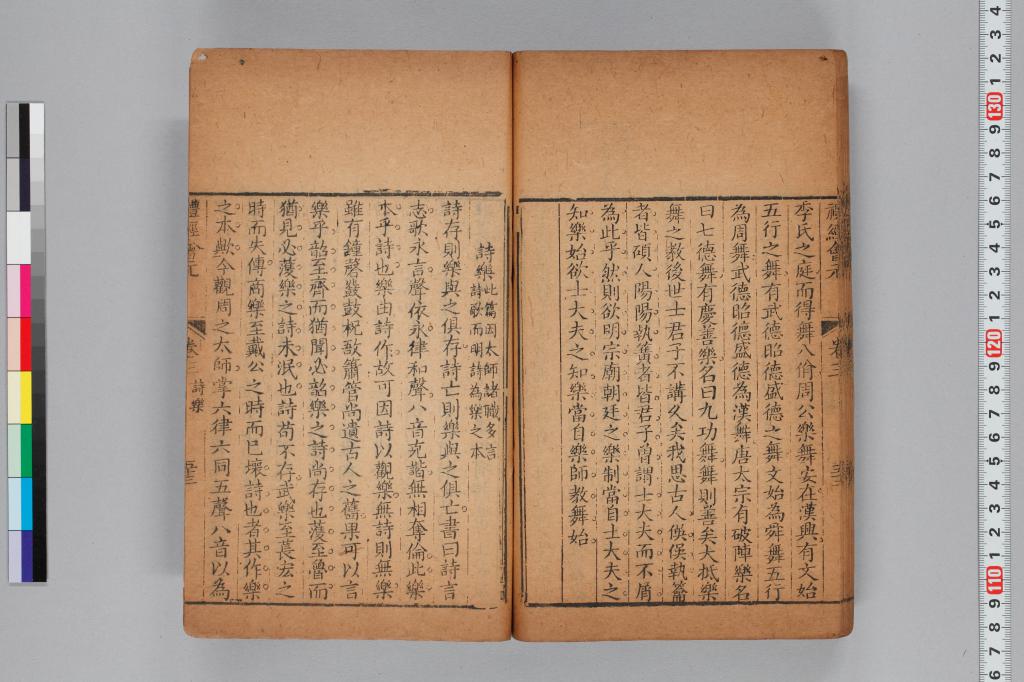 禮經會元
卷三
季氏之庭而得舞八佾周公樂舞安在漢興有文始
五行之舞有武德昭德盛德之舞文始為舜舞五行
為周舞武德昭德盛德為漢舞唐太宗有破陣樂名
曰七德舞有慶善樂名曰九功舞舞則善矣大抵樂
舞之教後世士君子不講久矣我思古人俁俁執籥
者皆碩人陽陽執簧者皆君子曾謂士大夫而不屑
為此乎然則欲明宗廟朝廷之樂制當自士大夫之
知樂始欲士大夫之知樂當自樂師教舞始
詩樂此篇因太師諸職多言
詩歌而明詩為樂之本
詩存則樂與之俱存詩亡則樂與之俱亡書曰詩言
志歌永言聲依永律和聲八音克諧無相奪倫此樂
本乎詩也樂由詩作故可因詩以觀樂無詩則無樂
雖有鐘磬鼗鼓柷敔簫管尚遺古人之舊果可以言
樂乎韶至齊而猶聞必韶樂之詩尚存也濩至魯而
猶見必濩樂之詩未泯也詩苟不存武樂至萇宏之
時而失傳商樂至戴公之時而已壞詩也者其作樂
之本歟今觀周之太師掌六律六同五聲八音以為
禮經會元
卷三
詩樂